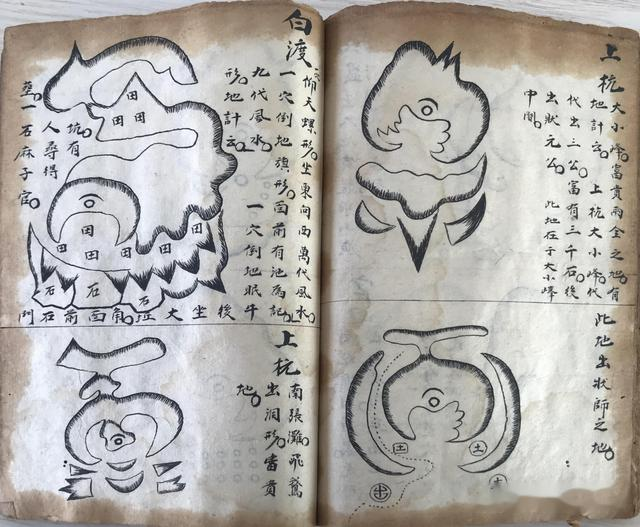 上杭
大小峰富貴兩全之地有
地計云上杭大小峰代
代出三公富有三千石後
出狀元公此地在于大小峰
中間
此地出牧師之地
土
土
土
白渡
仰天螺形坐東向西萬代風水
一穴倒地旗形面前有池為記
九代風水一穴倒地眠牛
形地計云
後坐大
角面前石門
坑有
人尋得
一石麻子官
田
田田
田
田
田
田
田
石
石
石
上杭
南張灘飛鵞
出洞形富貴
地